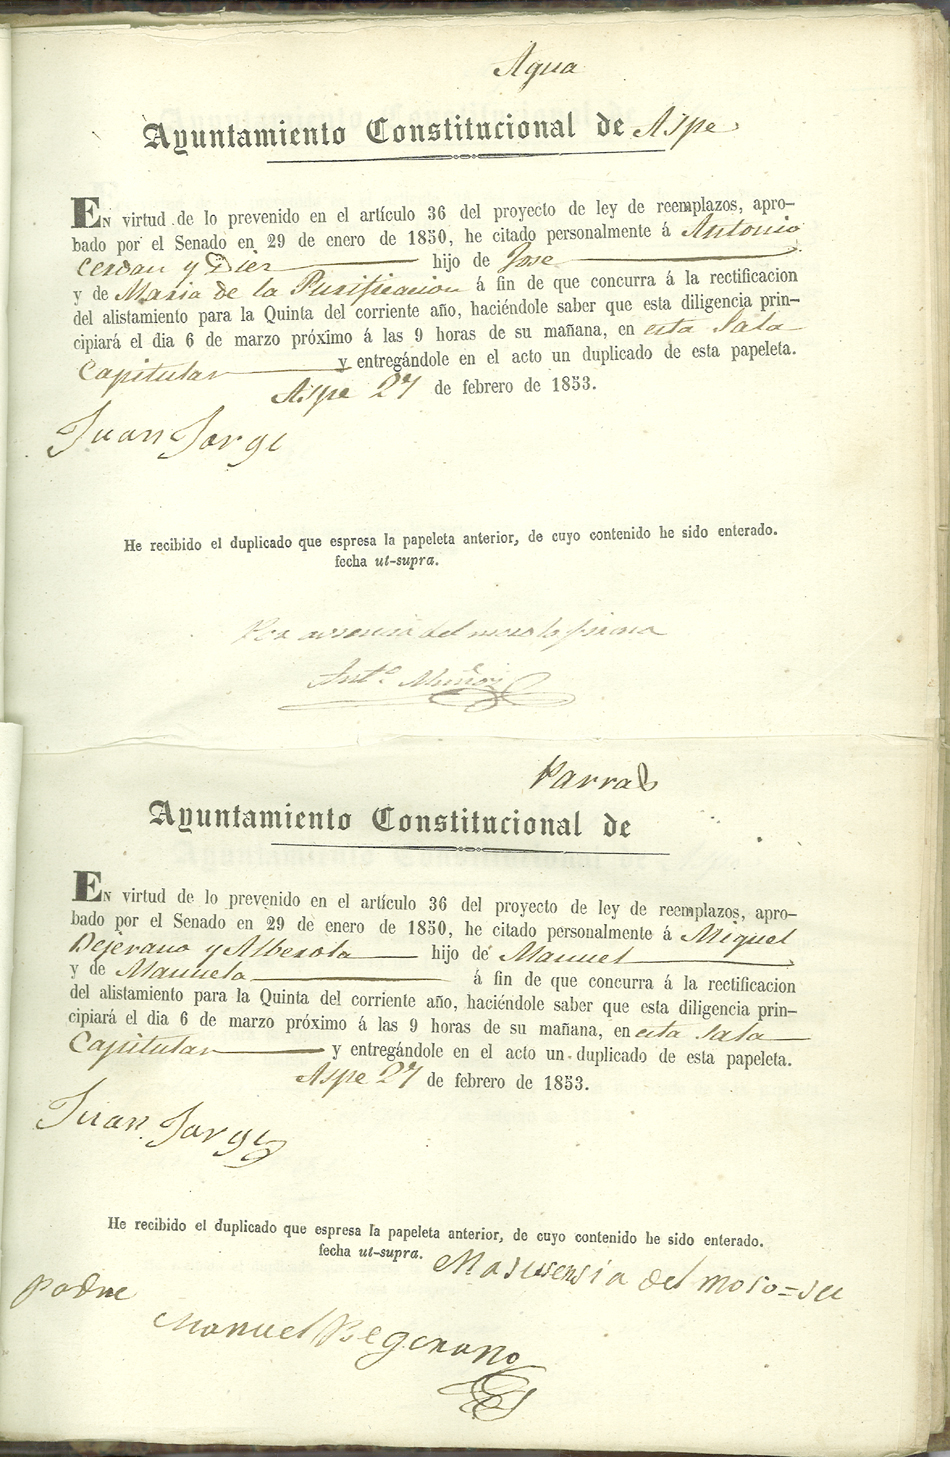 Agua
Ayuntamiento Constitucional de Aspe
EN virtud de lo prevenido en el artículo 36 del proyecto de ley de reemplazos, apro-
bado por el Senado en 29 de enero de 1850, he citado personalmente á Antonio
Cerdan y Dies hijo de Jose
y de Maria de la Purificacion á fin de que concurra á la rectificacion
del alistamiento para la Quinta del corriente año, haciéndole saber que esta diligencia prin-
cipiará el dia 6 de marzo próximo á las 9 horas de su mañana, en esta Sala
Capitular y entregándole en el acto un duplicado de esta papeleta.
Aspe 27 de febrero de 1853.
Juan Jorge
He recibido el duplicado que espresa la papeleta anterior, de cuyo contenido he sido enterado.
fecha ut-supra.
Por ausencia del moso lo firma
Antº Muñoz
Parra
Ayuntamiento Constitucional de
EN virtud de lo prevenido en el artículo 36 del proyecto de ley de reemplazos, apro-
bado por el Senado en 29 de enero de 1850, he citado personalmente á Miguel
Bejerano y Alberola hijo de Manuel
y de Manuela á fin de que concurra á la rectificacion
del alistamiento para la Quinta del corriente año, haciéndole saber que esta diligencia prin-
cipiará el dia 6 de marzo próximo á las 9 horas de su mañana, en esta Sala
Capitular y entregándole en el acto un duplicado de esta papeleta.
Aspe 27 de febrero de 1853.
Juan Jorge
He recibido el duplicado que espresa la papeleta anterior, de cuyo contenido he sido enterado.
fecha ut-supra.
del moso = su
Padre
Manuel Begerano